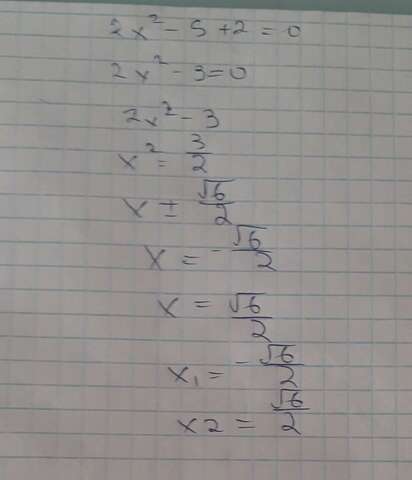 2x² - 5 + 2 = 0
2x² - 3 = 0
2x² - 3
x² = 3/2
x ± √6/2
x = -√6/2
x = √6/2
x₁ = -√6/2
x2 = √6/2